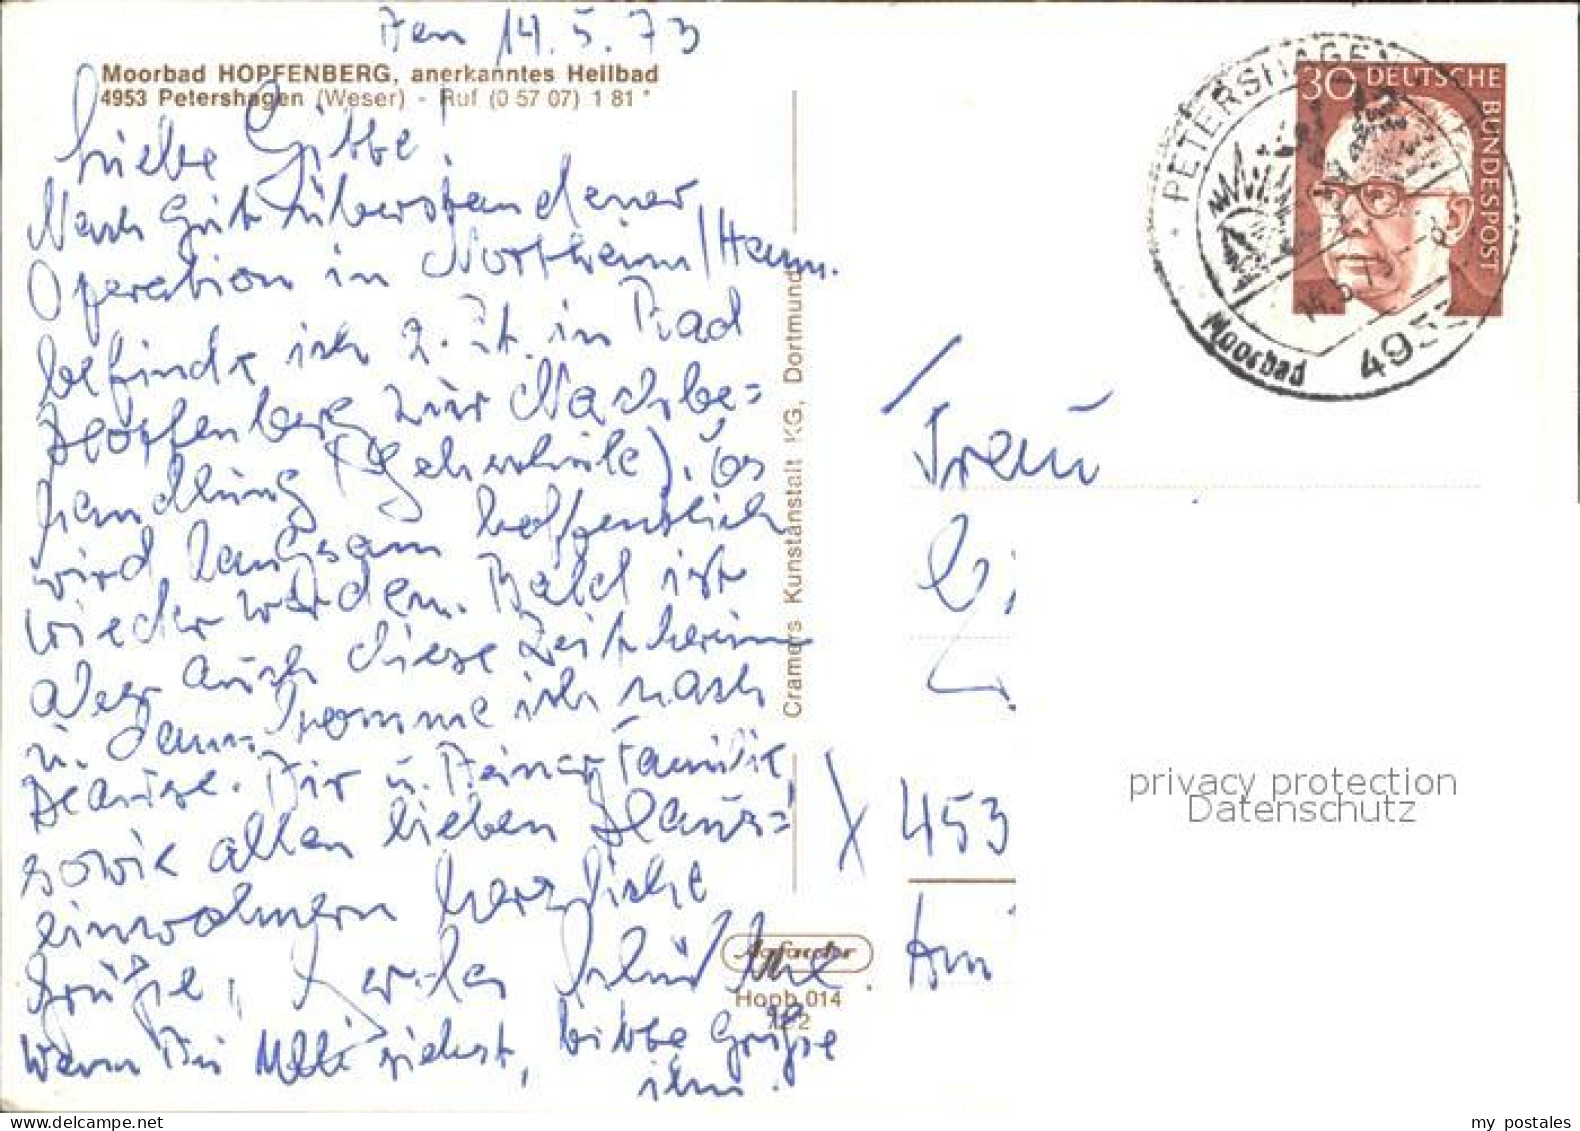 Den 14.5.73
Moorbad HOPFENBERG, anerkanntes Heilbad
4953 Petershagen (Weser) - Ruf (0 57 07) 1 81*
Liebe Gitte!
Nach gut überstandener
Operation in Northeim/Hann.
befinde ich z. Zt. in Bad
Hopfenberg zur Nachbe=
handlung (Gehschule). Es
wird langsam hoffentlich
wieder werden. Bald ist
aber auch diese Zeit herum
u. dann komme ich nach
Hause. Dir u. Deiner Familie
sowie allen lieben Haus=
einwohnern herzliche
Grüße,
Wenn Du Ulli siehst, bitte Grüße
ihn.
Cramers Kunstanstalt KG, Dortmund
Agfacolor
Hopb 014
30 DEUTSCHE BUNDESPOST
PETERSHAGEN
Moorbad
495
Frau
453
privacy protection
Datenschutz
my postales